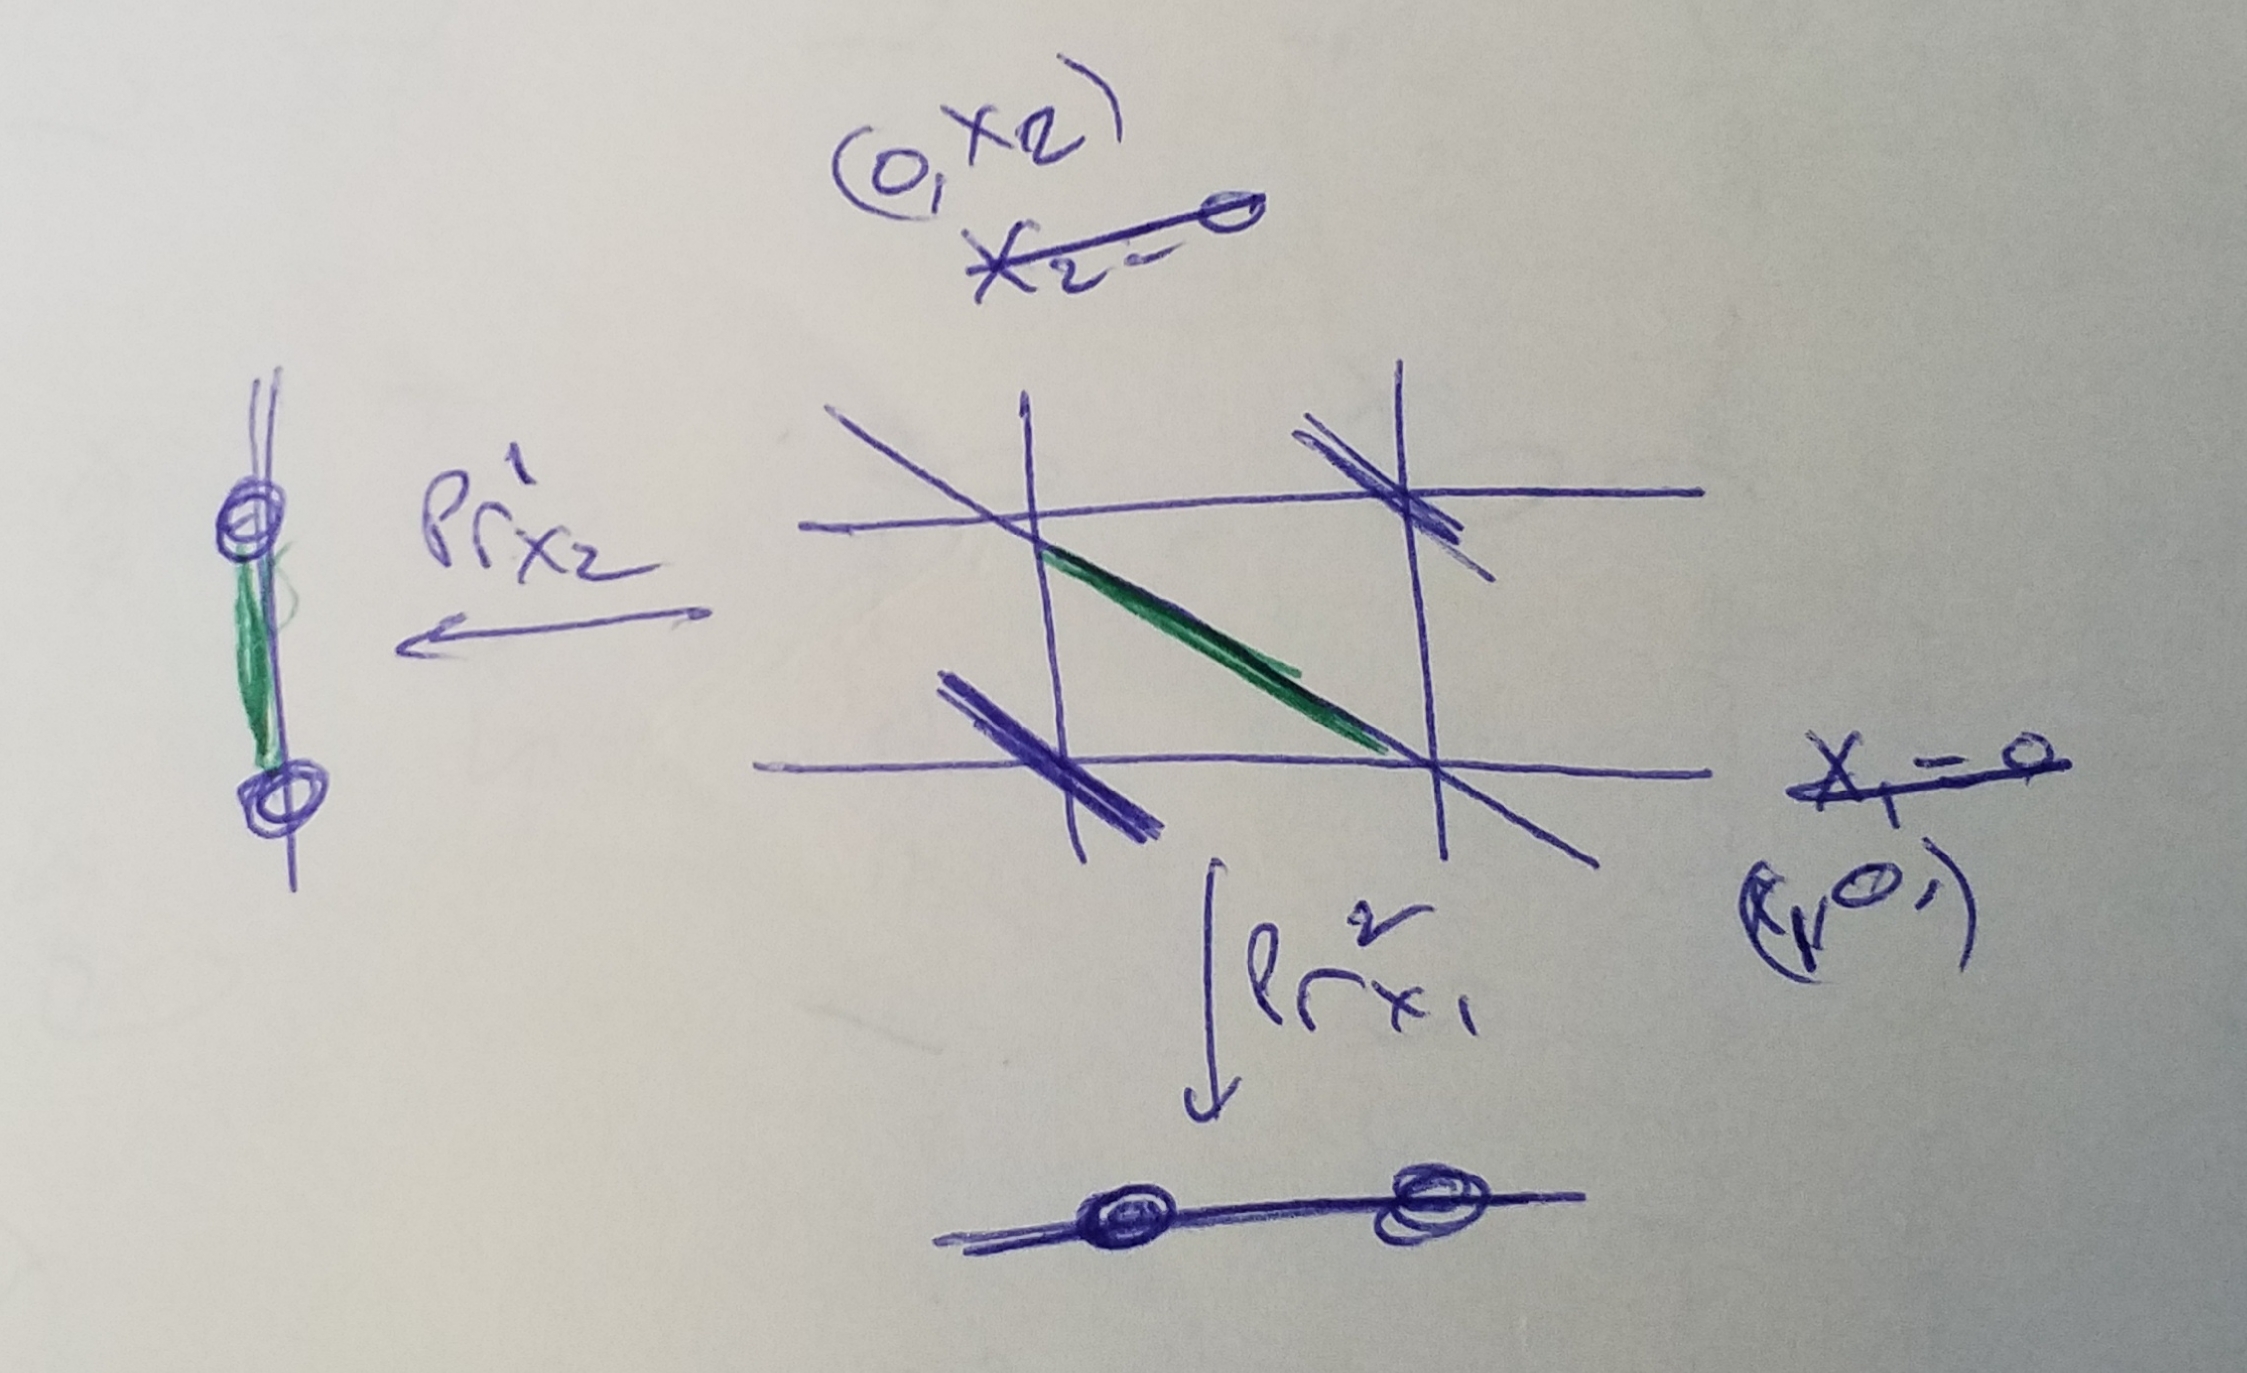 (0, x2)
x2 -
Pr¹x2
x1 - 0
(x1, 0,)
Pr²x1